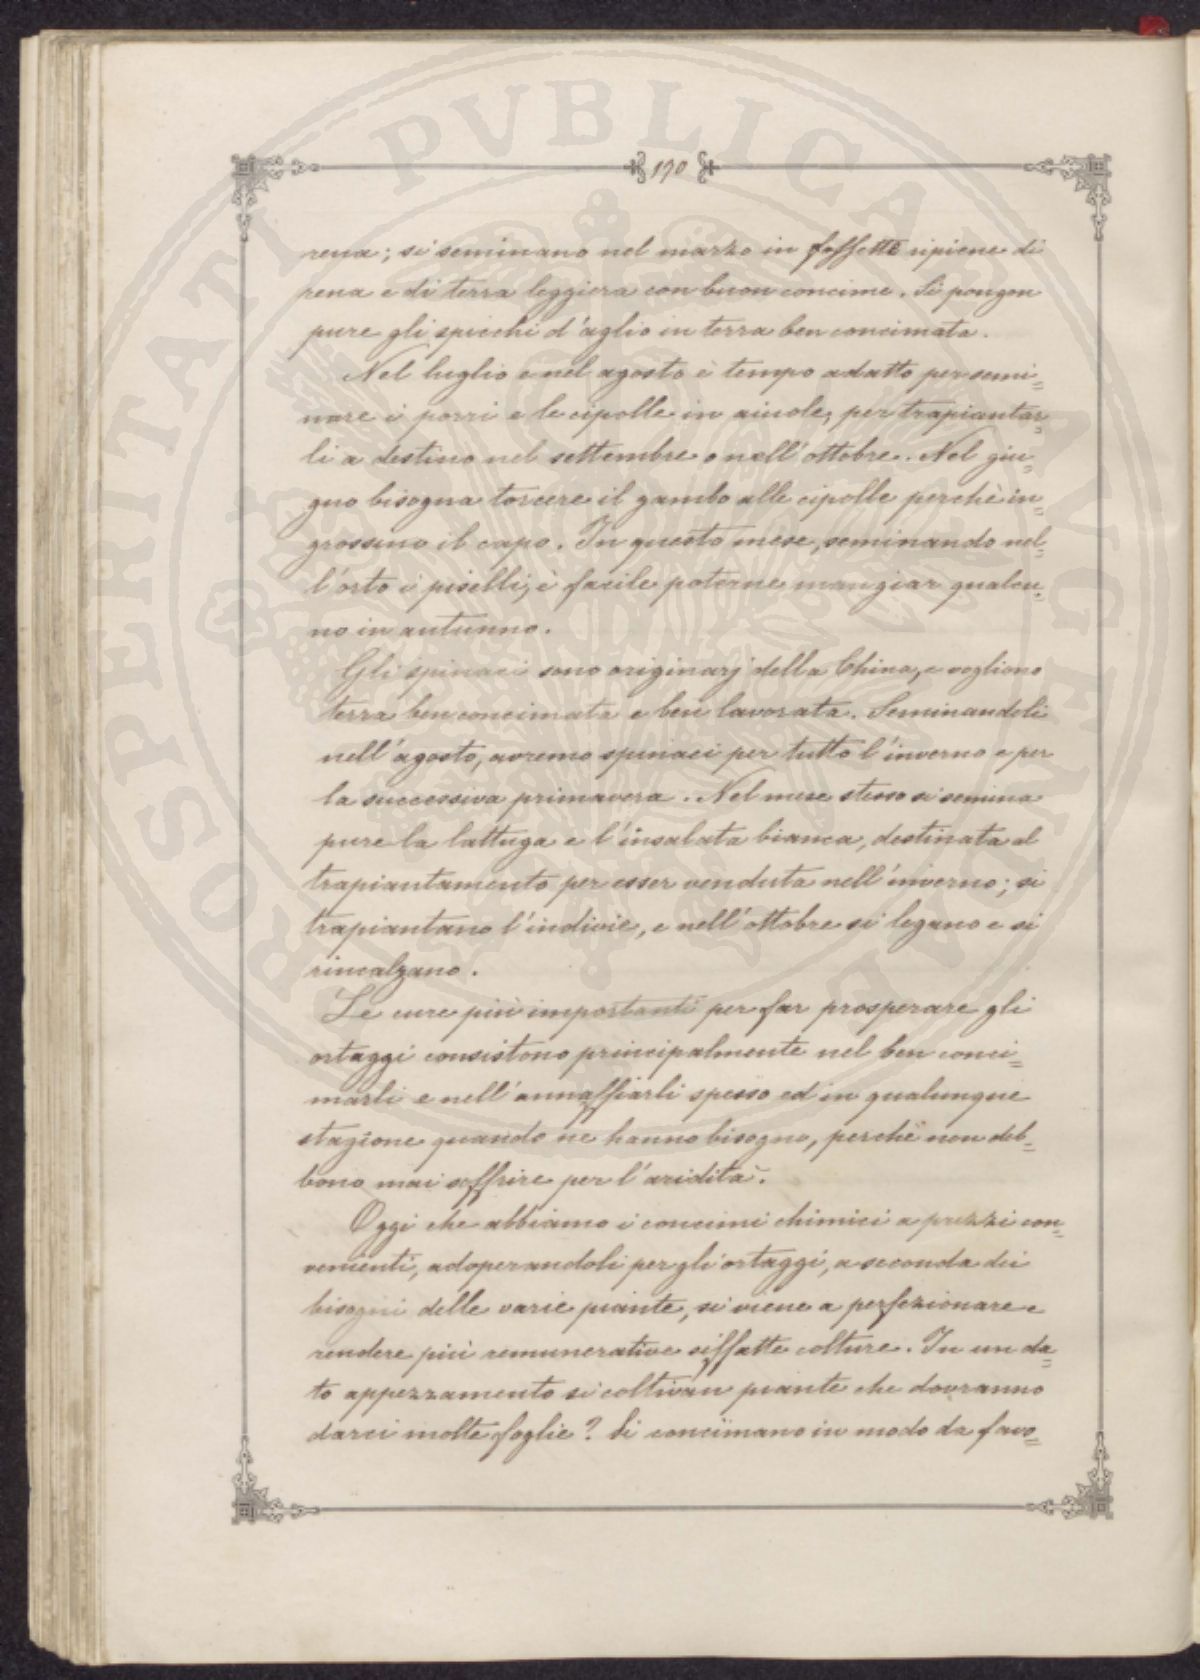 190
rena; si seminano nel marzo in fossette ripiene di
rena e di terra leggiera con buon concime. Si pongon
pure gli spicchi d'aglio in terra ben concimata.
Nel luglio e nel agosto è tempo adatto per semi=
nare i porri e le cipolle in aiuole, per trapiantar=
li a destino nel settembre o nell'ottobre. Nel giu=
gno bisogna torcere il gambo alle cipolle perchè in=
grossino il capo. In questo mese, seminando nel=
l'orto i piselli, è facile poterne mangiar qualcu=
no in autunno.
Gli spinaci sono originarj della China, e vogliono
terra ben concimata e ben lavorata. Seminandoli
nell'agosto, avremo spinaci per tutto l'inverno e per
la successiva primavera. Nel mese stesso si semina
pure la lattuga e l'insalata bianca, destinata al
trapiantamento per esser venduta nell'inverno; si
trapiantano l'indivie, e nell'ottobre si legano e si
rincalzano.
Le cure più importanti per far prosperare gli
ortaggi consistono principalmente nel ben conci=
marli e nell'annaffiarli spesso ed in qualunque
stagione quando ne hanno bisogno, perchè non deb=
bono mai soffrire per l'aridità.
Oggi che abbiamo i concimi chimici a prezzi con=
venienti, adoperandoli per gli ortaggi, a seconda dei
bisogni delle varie piante, si viene a perfezionare e
rendere più remunerative siffatte colture. In un da=
to appezzamento si coltivan piante che dovranno
darci molte foglie? Si concimano in modo da favo=
PROSPERITATI PVBLICAE AVGENDAE